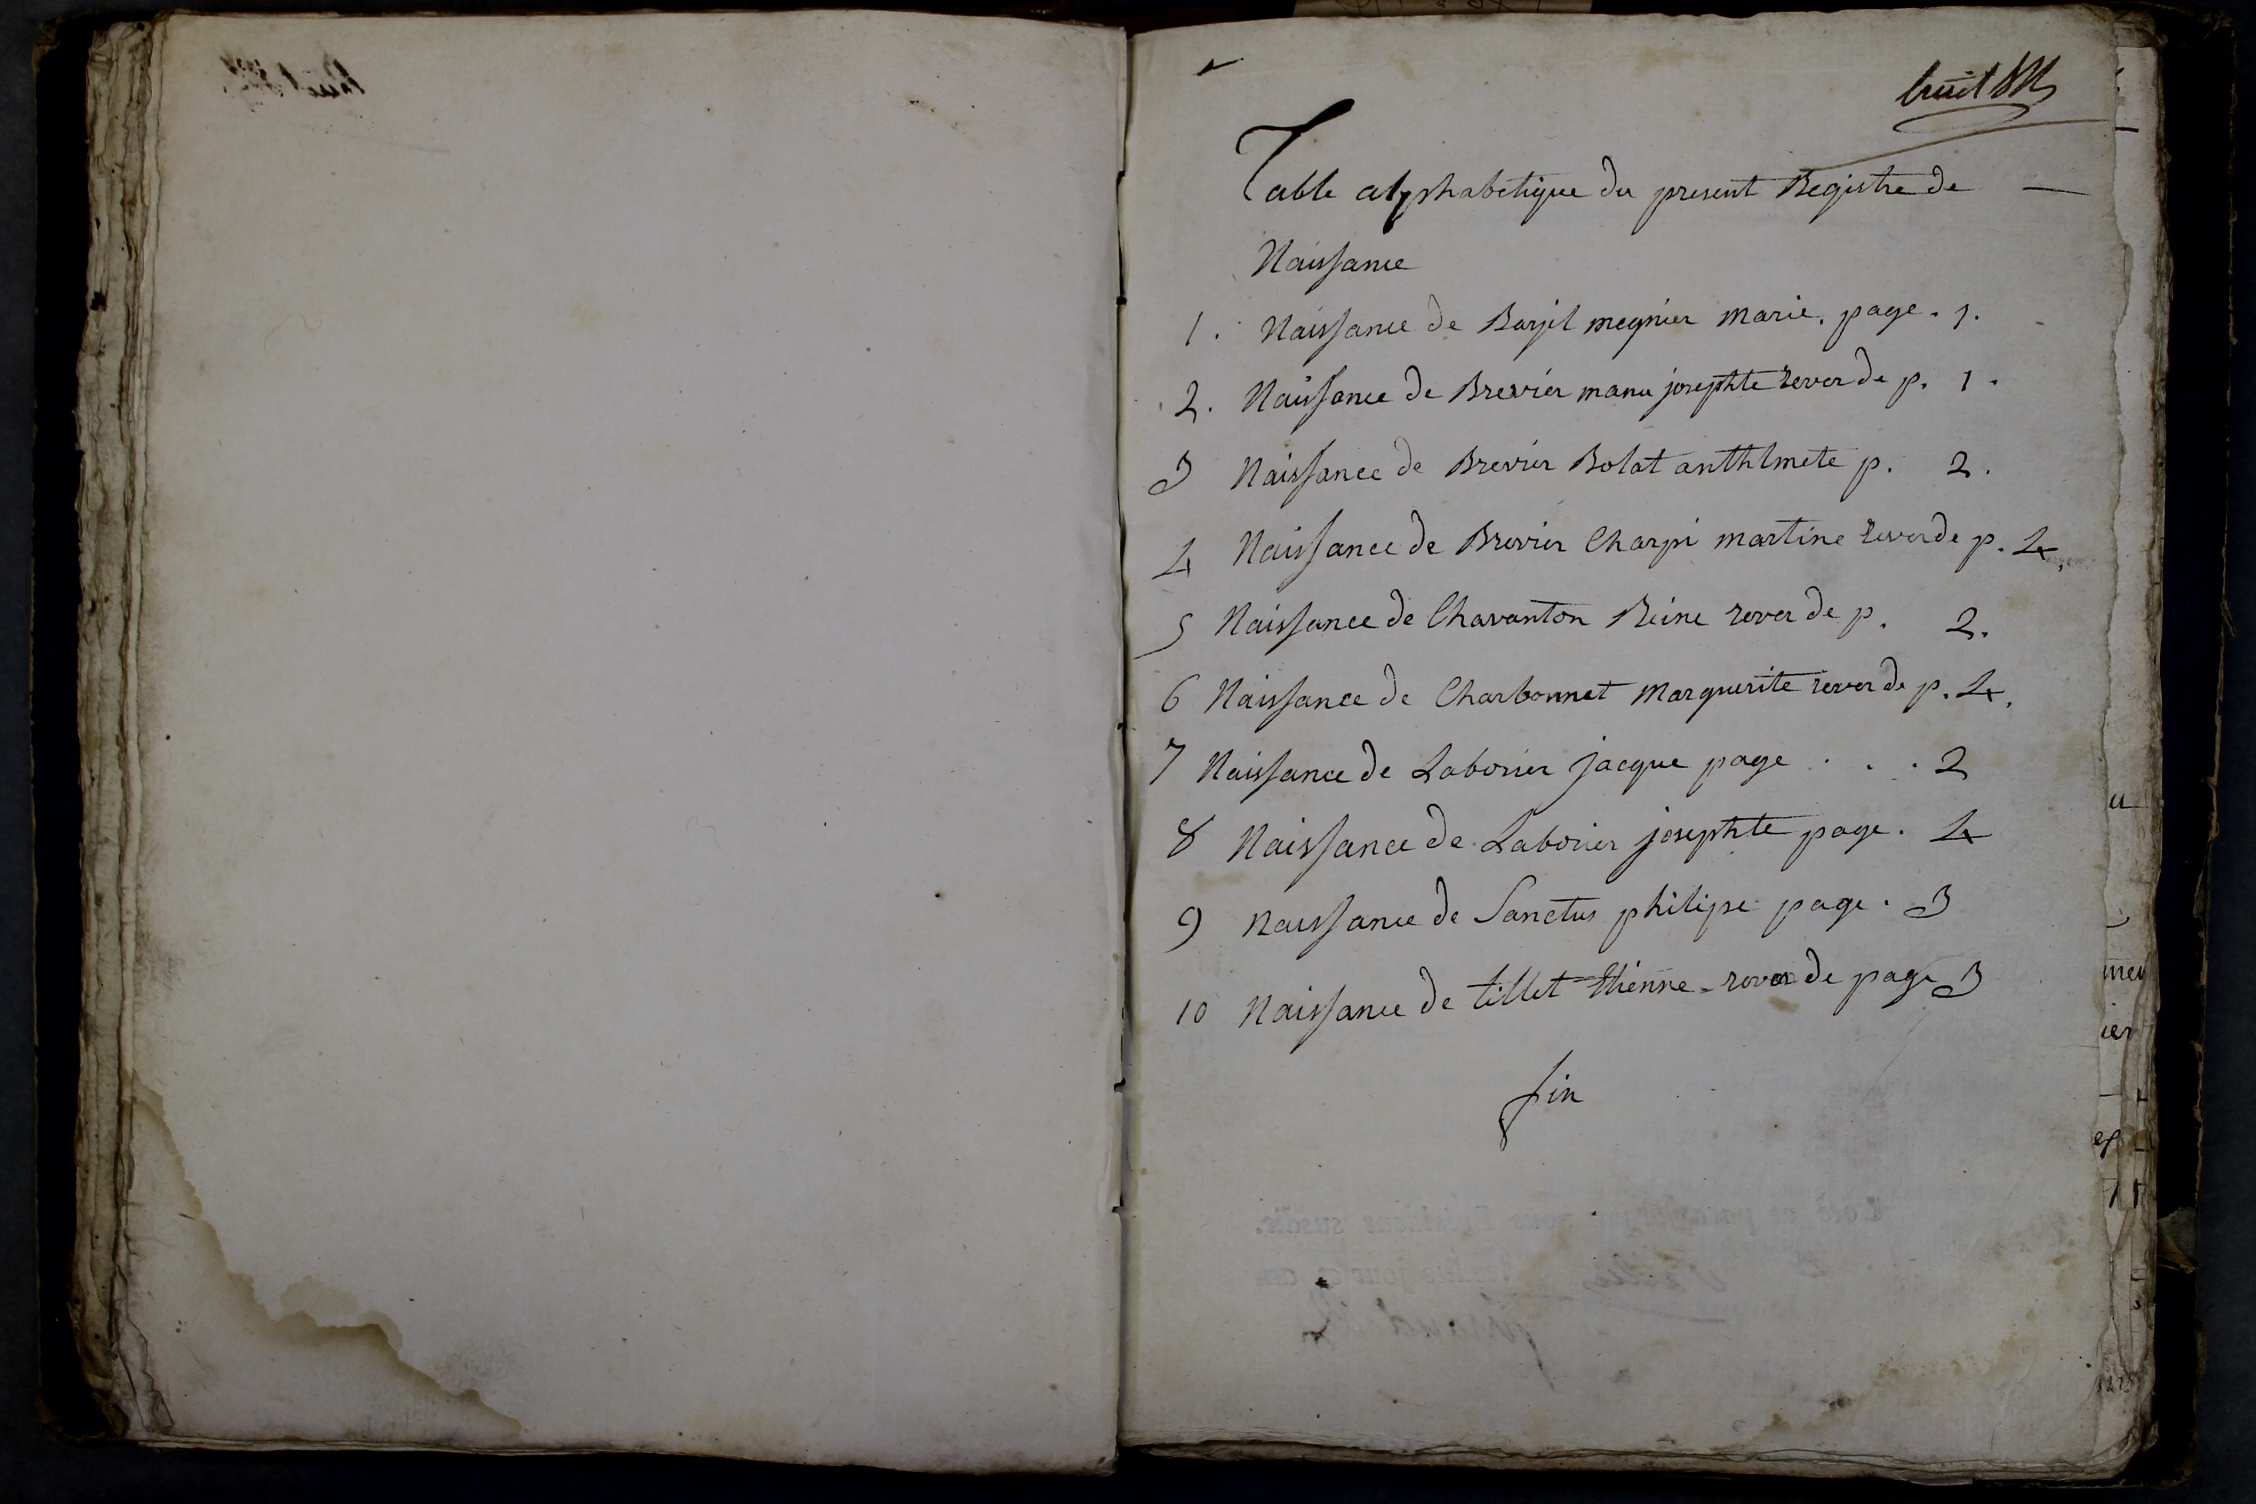 huit
Table alphabetique du present Registre de
Naissance
1. Naissance de Barjil megnier marie. page. 1.
2. Naissance de Brevier marie josephte rever de p. 1.
3 Naissance de Brevier Bolat anthlmete p. 2.
4 Naissance de Brevier Charpi martine rever de p. 4.
5 Naissance de Chavanton Reine rever de p. 2.
6 Naissance de Charbonnet Marguerite rever de p. 4.
7 Naissance de Laborier jacque page . . . 2
8 Naissance de Laborier josephte page. 4
9 Naissance de Sanctus philipe page. 3
10 Naissance de tillet Etienne - rever de page 3
fin